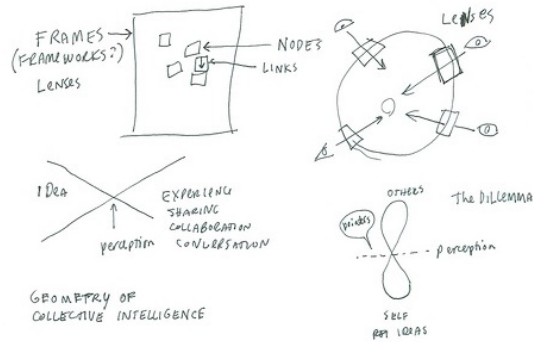 FRAMES
(FRAMEWORKS?)
LENSES
NODES
LINKS
LENSES
IDEA
perception
EXPERIENCE
SHARING
COLLABORATION
CONVERSATION
GEOMETRY OF
COLLECTIVE INTELLIGENCE
OTHERS
The DILLEMMA
pointers
perception
SELF
IDEAS